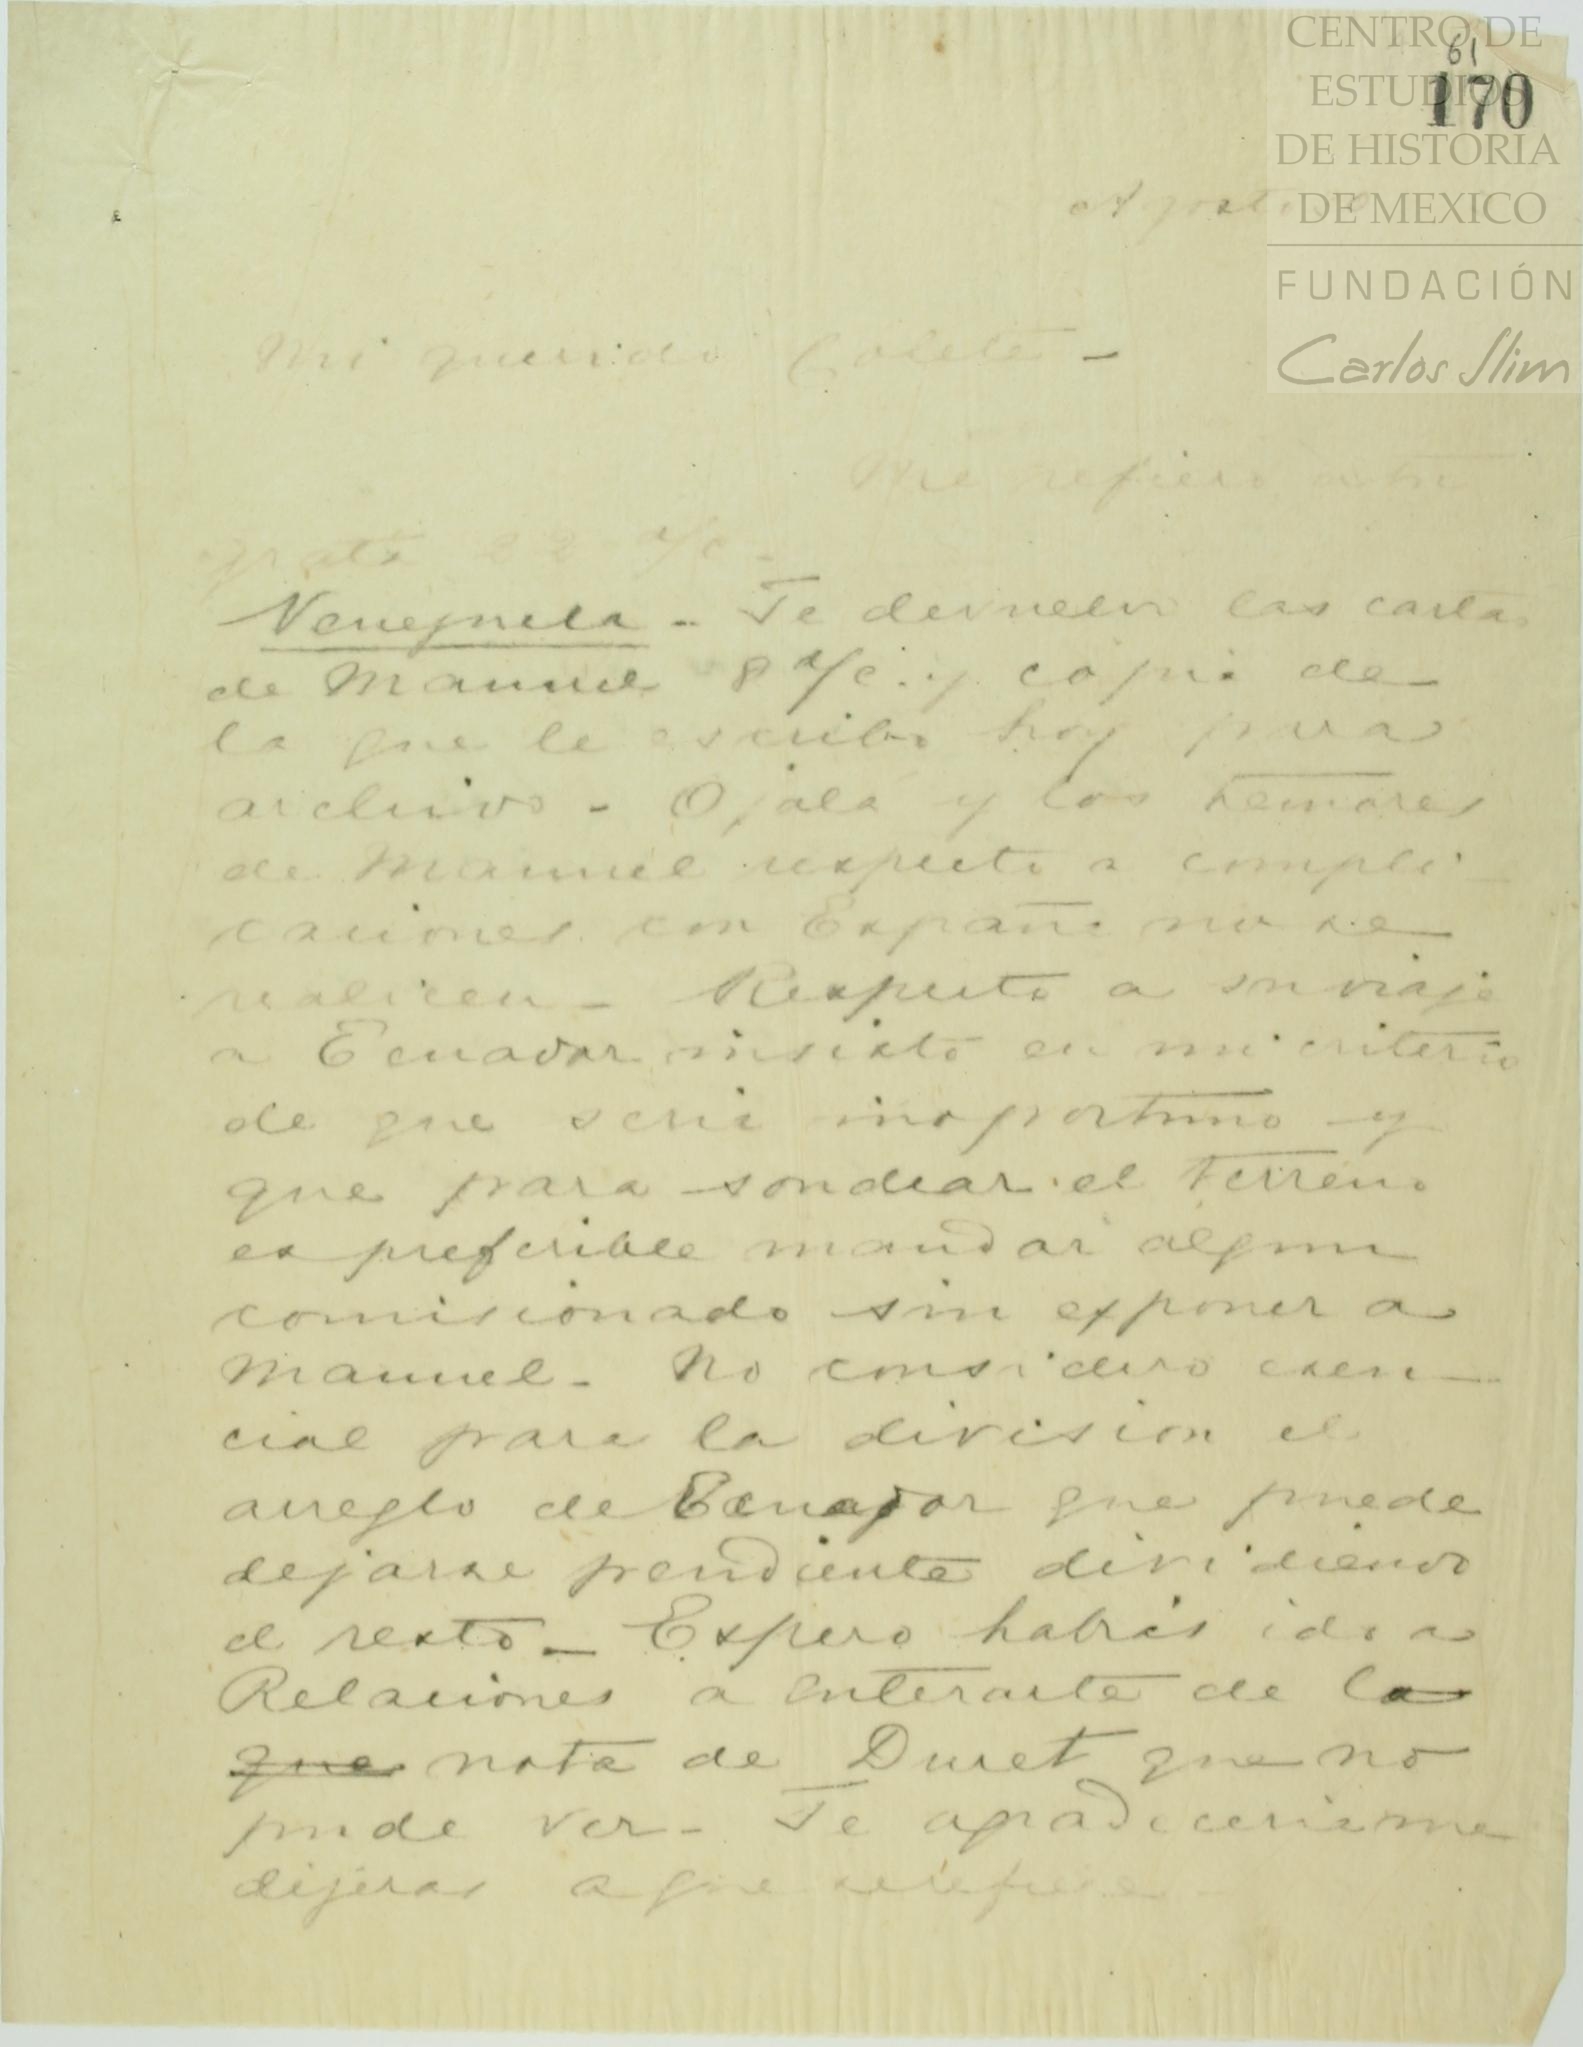 CENTRO DE
ESTUDIOS
DE HISTORIA
DE MEXICO
FUNDACIÓN
Carlos Slim
61
170
Agosto
Mi querido
Me refiero a tu
grata 22 a/c.
Venezuela - Te devuelvo las cartas
de Manuel 8 a/c. y copia de
la que le escribo hoy para
archivo - Ojalá y los temores
de Manuel respecto a compli-
caciones con España no se
realicen - Respecto a su viaje
a Ecuador insisto en mi criterio
de que seria inoportuno y
que para sondear el terreno
es preferible mandar algun
comisionado sin exponer a
Manuel - No considero esen-
cial para la division el
arreglo de Ecuador que puede
dejarse pendiente dividiendo
el resto - Espero habrás ido a
Relaciones a enterarte de la
que nota de Duret que no
pude ver - Te agradeceria me
dijeras a que se refiere -